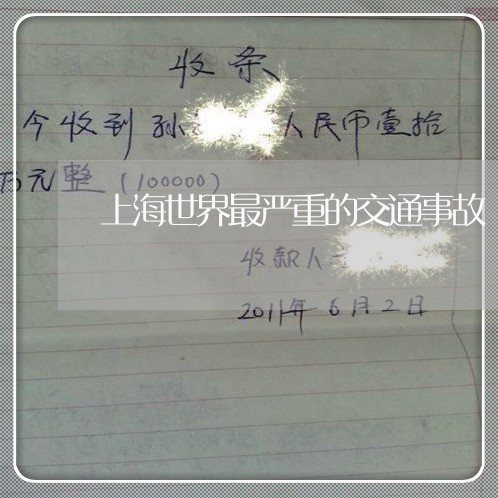 收条
今收到孙 人民币壹拾
万元整(100000)
上海世界最严重的交通事故
收款人
2011年6月2日